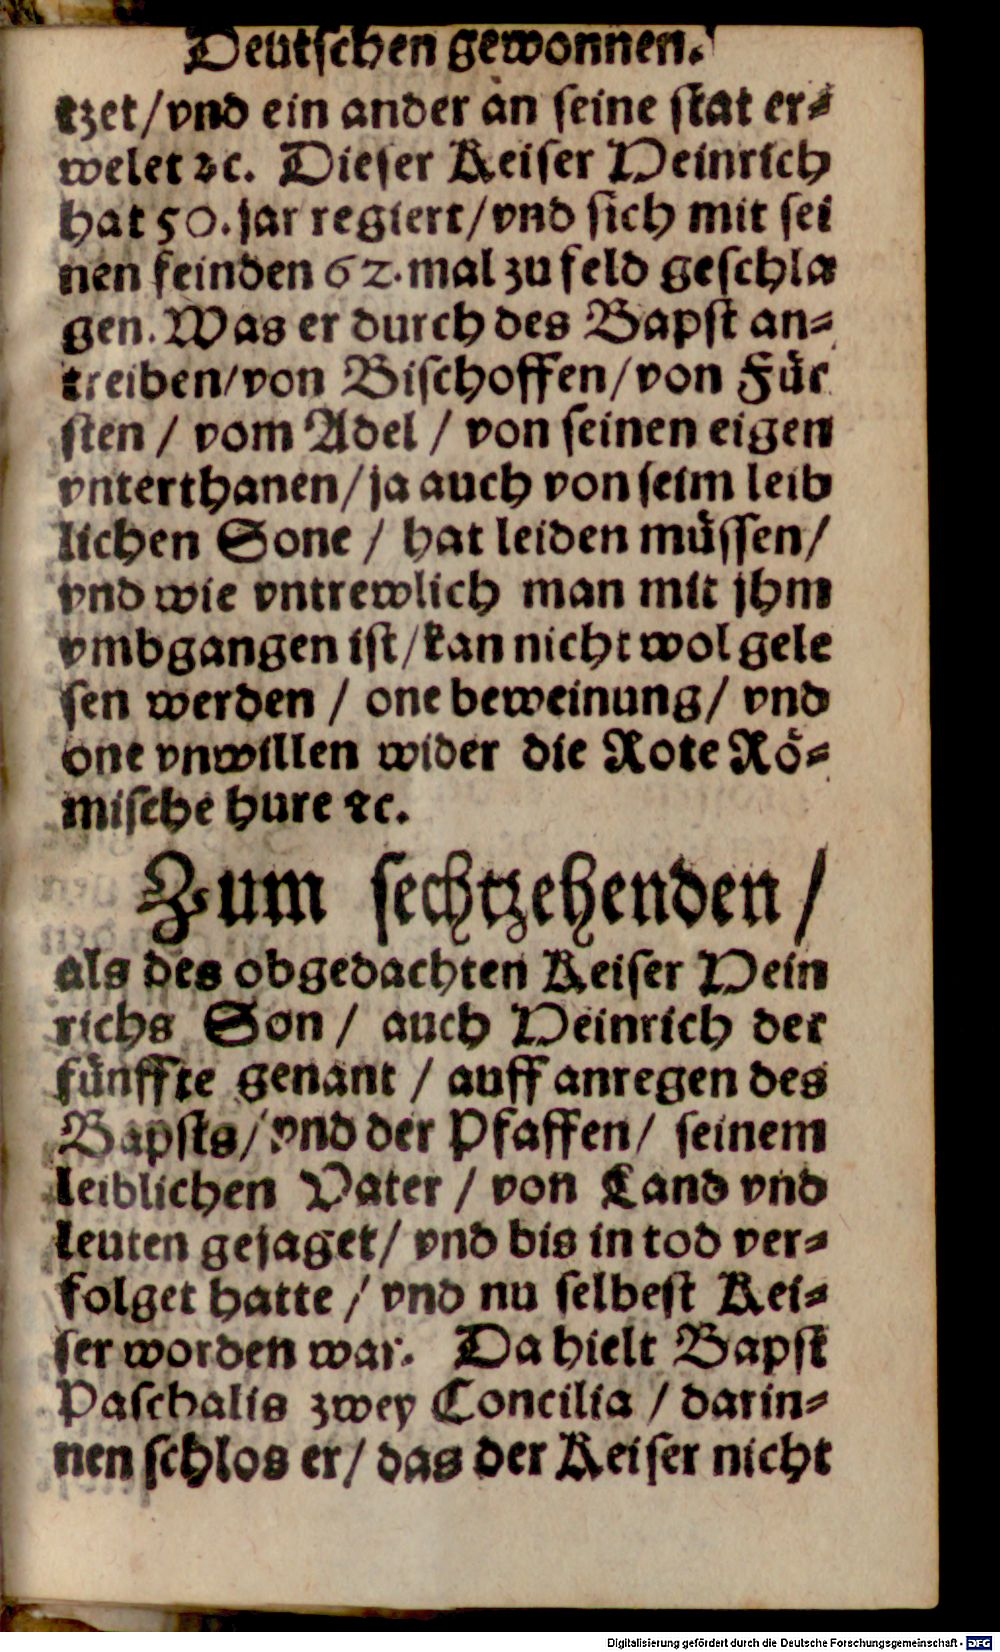 Deutschen gewonnen.
tzet / vnd ein ander an seine stat er⸗
welet ꝛc. Dieser Keiser Heinrich
hat 50. jar regiert / vnd sich mit sei
nen feinden 62. mal zu feld geschla
gen. Was er durch des Bapst an⸗
treiben / von Bischoffen / von Für
sten / vom Adel / von seinen eigen
vnterthanen / ja auch von seim leib
lichen Sone / hat leiden müssen /
vnd wie vntrewlich man mit jhm
vmbgangen ist / kan nicht wol gele
sen werden / one beweinung / vnd
one vnwillen wider die Rote Rö⸗
mische hure ꝛc.
Zum sechtzehenden /
als des obgedachten Keiser Hein
richs Son / auch Heinrich der
fünffte genant / auff anregen des
Bapsts / vnd der Pfaffen / seinem
leiblichen Vater / von Land vnd
leuten gejaget / vnd bis in tod ver⸗
folget hatte / vnd nu selbest Kei⸗
ser worden war. Da hielt Bapst
Paschalis zwey Concilia / darin⸗
nen schlos er / das der Keiser nicht
Digitalisierung gefördert durch die Deutsche Forschungsgemeinschaft - DFG